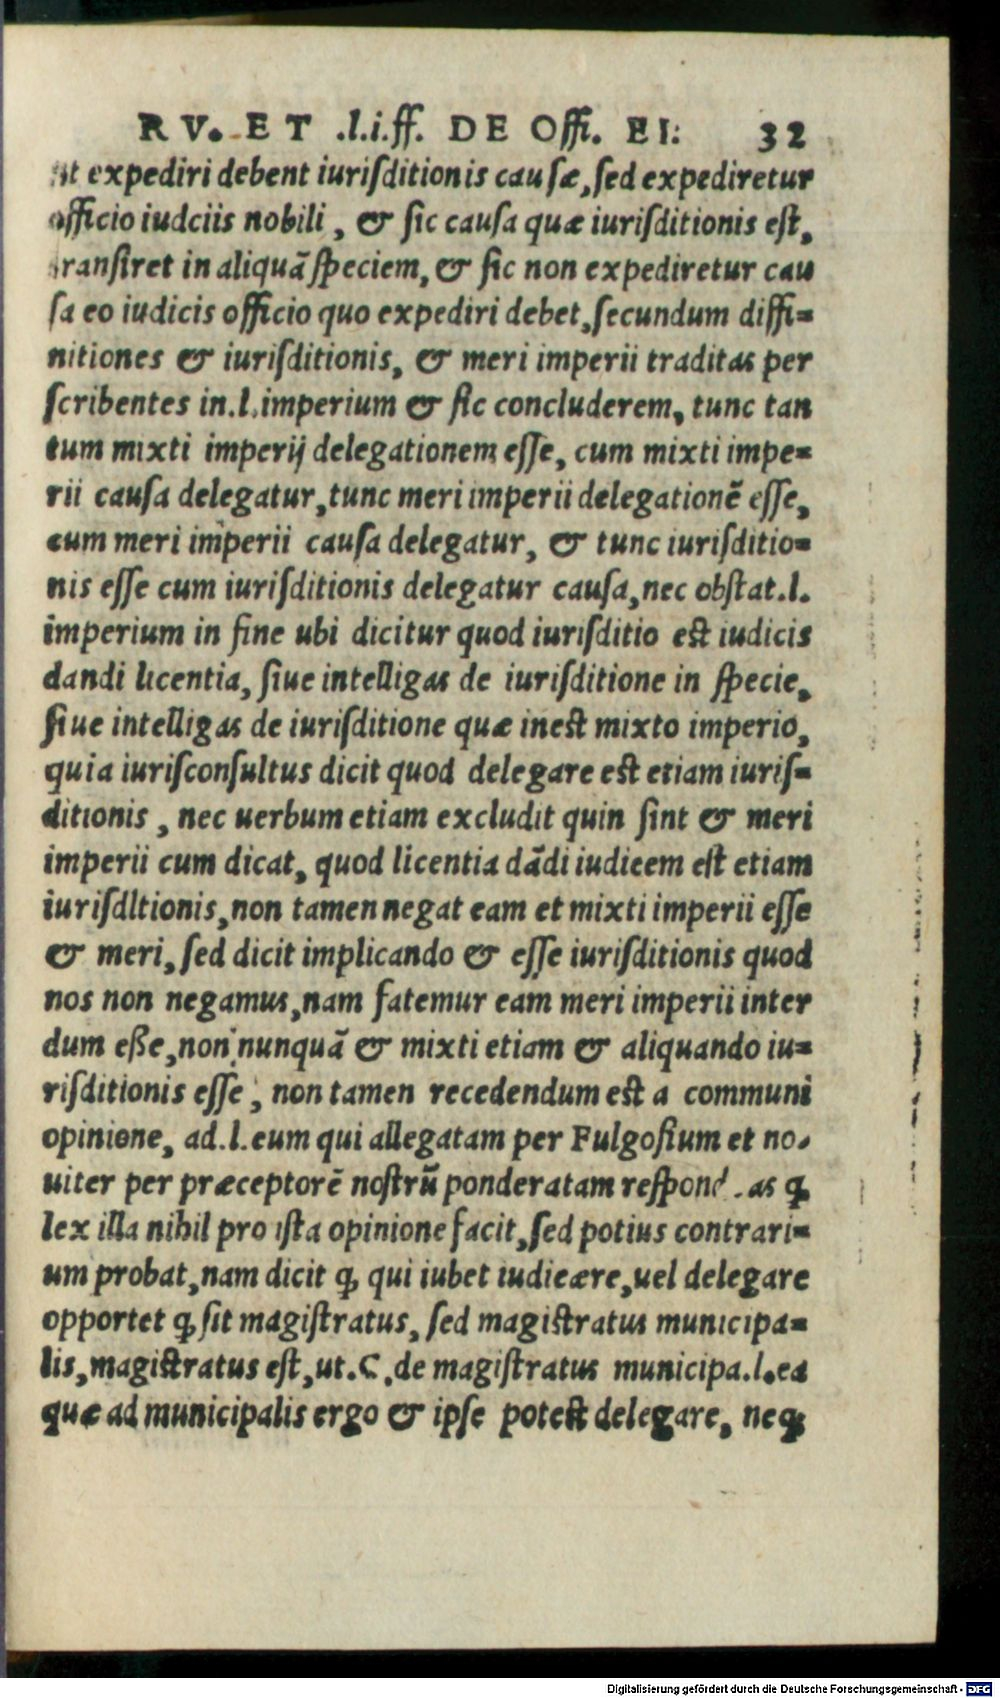 RV. ET .l.i.ff. DE Offi. EI: 32
ut expediri debent iuriſditionis cauſæ, ſed expediretur
officio iudciis nobili, & ſic cauſa quæ iuriſditionis eſt,
tranſiret in aliquã ſpeciem, & ſic non expediretur cau
ſa eo iudicis officio quo expediri debet, ſecundum diffi=
nitiones & iuriſditionis, & meri imperii traditas per
ſcribentes in.l.imperium & ſic concluderem, tunc tan
tum mixti imperij delegationem eſſe, cum mixti impe=
rii cauſa delegatur, tunc meri imperii delegationẽ eſſe,
cum meri imperii cauſa delegatur, & tunc iuriſditio=
nis eſſe cum iuriſditionis delegatur cauſa, nec obſtat.l.
imperium in fine ubi dicitur quod iuriſditio eſt iudicis
dandi licentia, ſiue intelligas de iuriſditione in ſpecie,
ſiue intelligas de iuriſditione quæ ineſt mixto imperio,
quia iuriſconſultus dicit quod delegare eſt etiam iuriſ=
ditionis, nec uerbum etiam excludit quin ſint & meri
imperii cum dicat, quod licentia dãdi iudicem eſt etiam
iuriſdltionis, non tamen negat eam et mixti imperii eſſe
& meri, ſed dicit implicando & eſſe iuriſditionis quod
nos non negamus, nam fatemur eam meri imperii inter
dum eße, non nunquã & mixti etiam & aliquando iu=
riſditionis eſſe, non tamen recedendum eſt a communi
opinione, ad.l.eum qui allegatam per Fulgoſium et no=
uiter per præceptorẽ noſtrũ ponderatam reſpond as ꝙ
lex illa nihil pro iſta opinione facit, ſed potius contrari=
um probat, nam dicit ꝙ qui iubet iudicære, uel delegare
opportet ꝙ ſit magiſtratus, ſed magiſtratus municipa=
lis, magiſtratus eſt, ut.C.de magiſtratus municipa.l.ea
quæ ad municipalis ergo & ipſe poteſt delegare, neq;
Digitalisierung gefördert durch die Deutsche Forschungsgemeinschaft - DFG